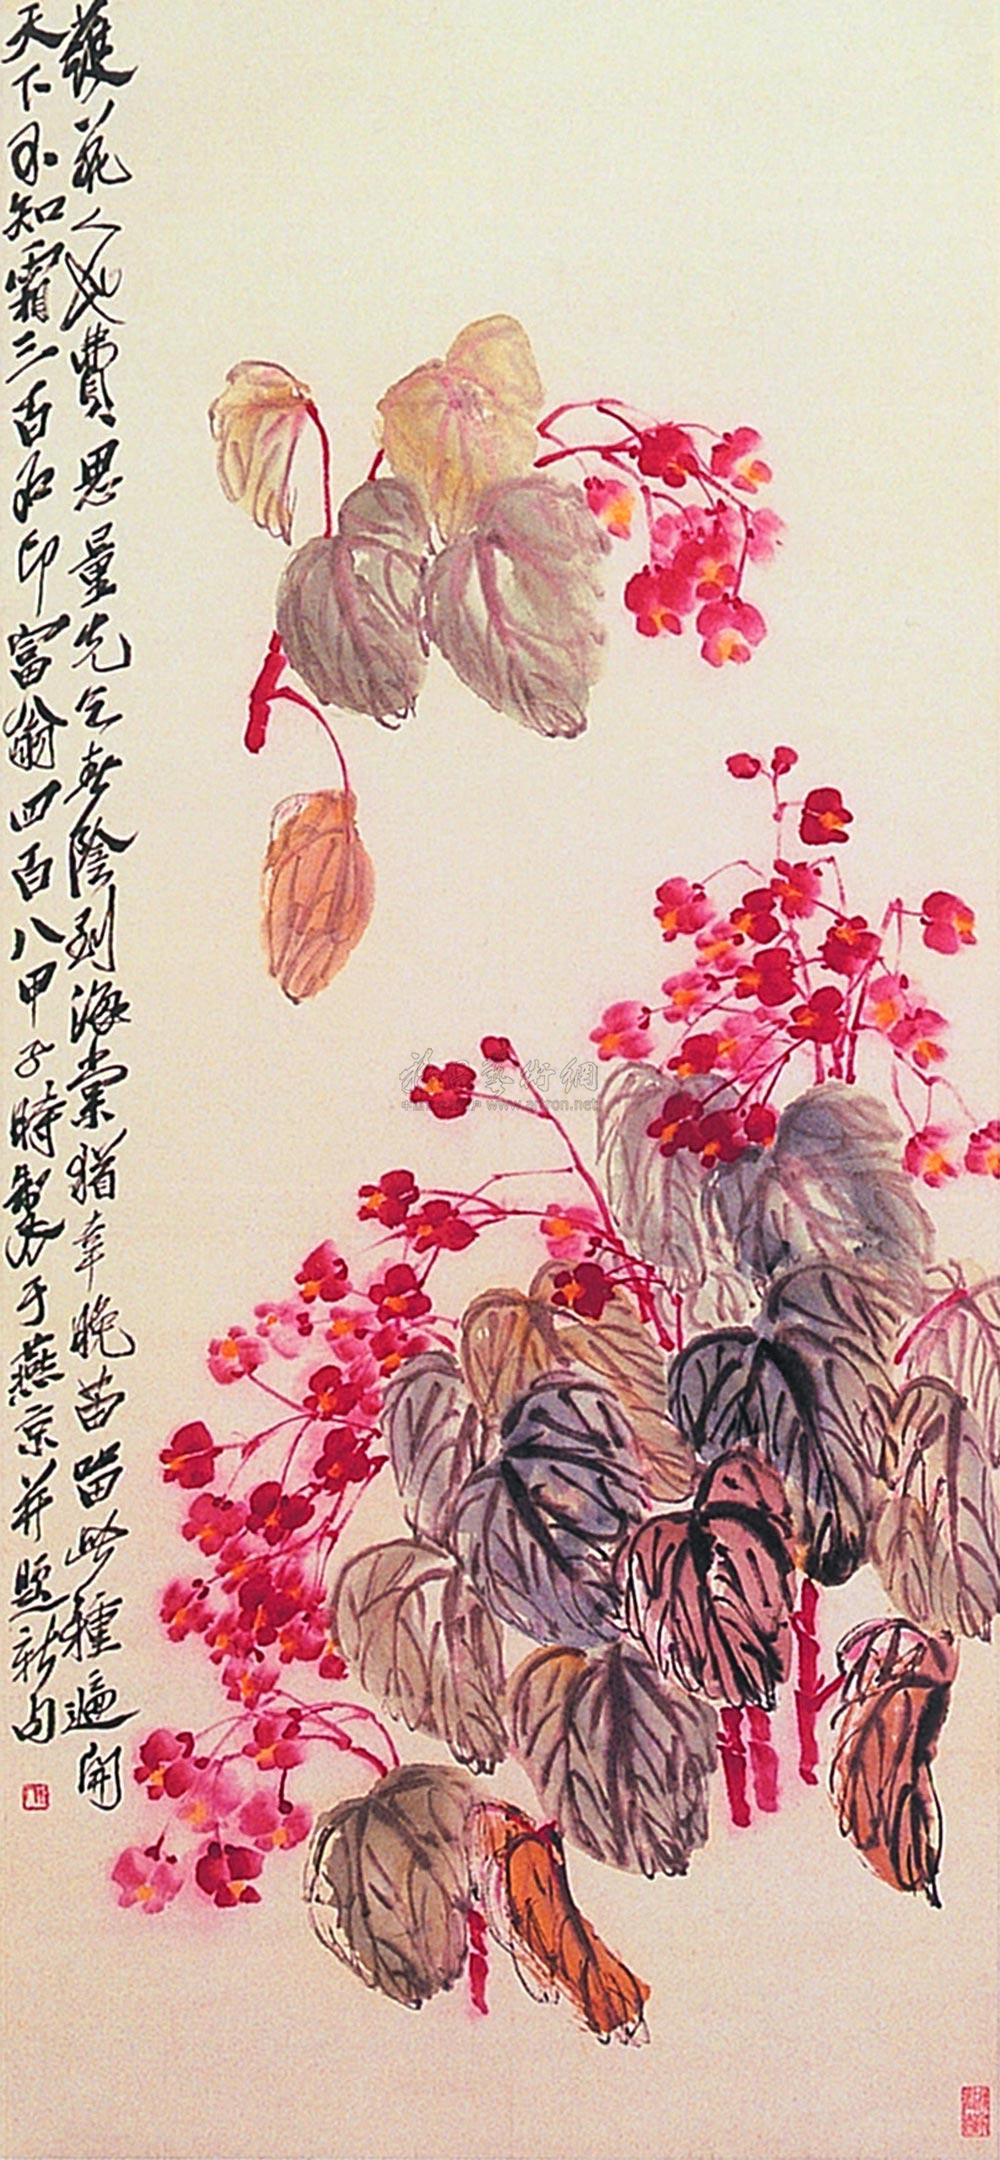 護花人欲費思量先乞春陰到海棠猶幸晚苗留此種遍開
天下不知霜三百石印富翁四百八甲子時製于燕京并題新句
www.aaron.net